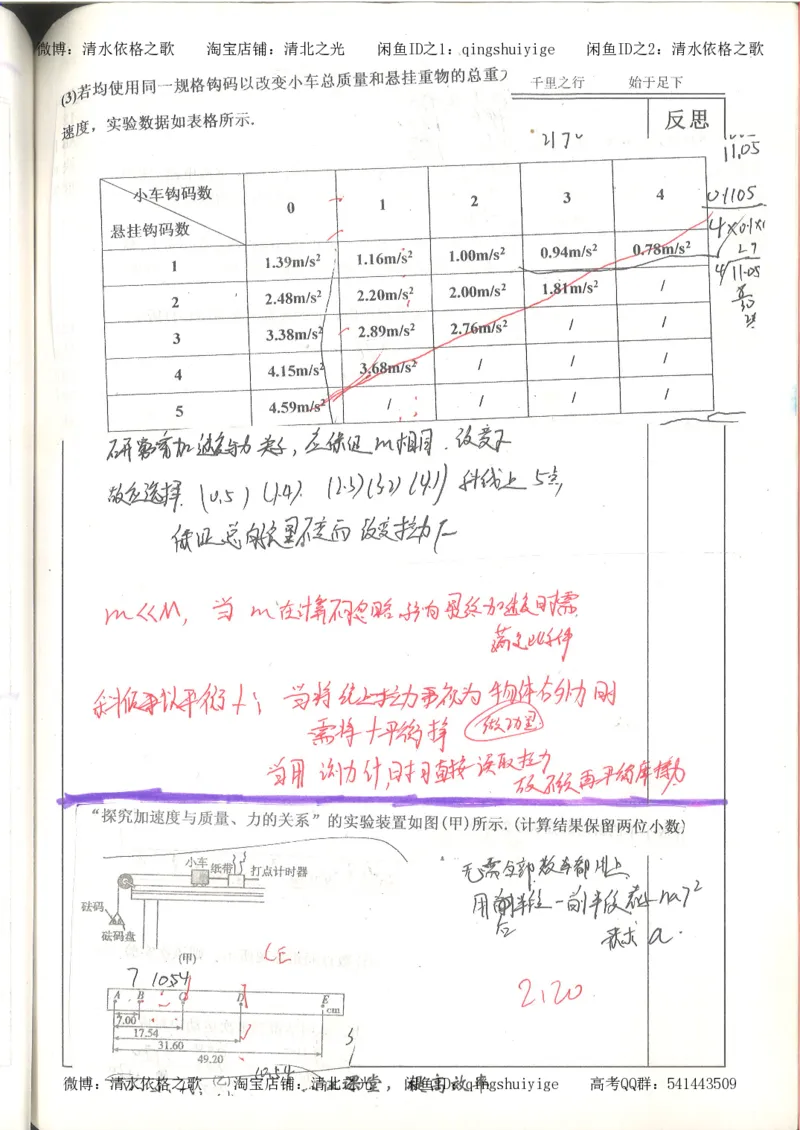 微博：清水依格之歌 淘宝店铺：清北之光 闲鱼ID之1：qingshuiyige 闲鱼ID之2：清水依格之歌
(3)若均使用同一规格钩码以改变小车总质量和悬挂重物的总重
千里之行 始于足下
速度，实验数据如表格所示.
反思
2170
11.05
小车钩码数 0 1 2 3 4
悬挂钩码数
0.1105
1 1.39m/s² 1.16m/s² 1.00m/s² 0.94m/s² 0.78m/s²
2 2.48m/s² 2.20m/s² 2.00m/s² 1.81m/s² /
3 3.38m/s² 2.89m/s² 2.76m/s² / /
4 4.15m/s² 3.68m/s² / / /
5 4.59m/s² / / / /
4/11.05
研究加速度与力关系，应保证m相同.改变F
故应选择.(0.5)(1.4).(2.3)(3.2)(4.1)斜线上5点
保证总质量不变而改变拉力F
m<<M，当m在计算
满足此条件
当将绳上拉力视为物体合外力时
需将f平衡掉
当用测力计，时可直接读取拉力
故不须再平衡摩擦力
“探究加速度与质量、力的关系”的实验装置如图(甲)所示.(计算结果保留两位小数)
小车 纸带 打点计时器
砝码
砝码盘
(甲)
无需全部数据都用上
后
求 a.
CE
7 10.54
2.20
A B C D E
cm
7.00
17.54
31.60
49.20
(乙)
10.54
微博：清水依格之歌 淘宝店铺：清北之光 闲鱼ID：qingshuiyige 高考QQ群：541443509
课堂，提高效率